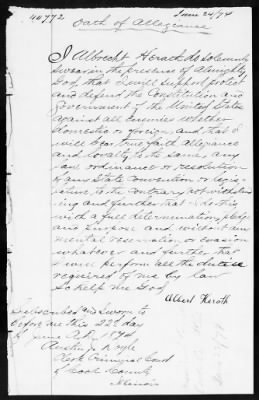 40772
June 24/74
Oath of Allegiance
I Albrecht Herath do solemnly
swear in the presence of Almighty
God, that I will support, protect
and defend the Constitution and
Government of the United States
against all enemies whether
domestic or foreign, and that I
will bear true faith allegiance
and loyalty to the same, any
law ordinance or resolution
of any State convention or legis-
lature, to the contrary notwithstanding
and further that I do this
with a full determination, pledge
and purpose and without any
mental reservation or evasion
whatever and further that
I will perform all the duties
required of me by law
so help me God
Albert Herath
Subscribed and sworn to
before me this 22d day
of June A.D. 1874
Austin J. Doyle
Clerk Criminal Court
of Cook County
Illinois